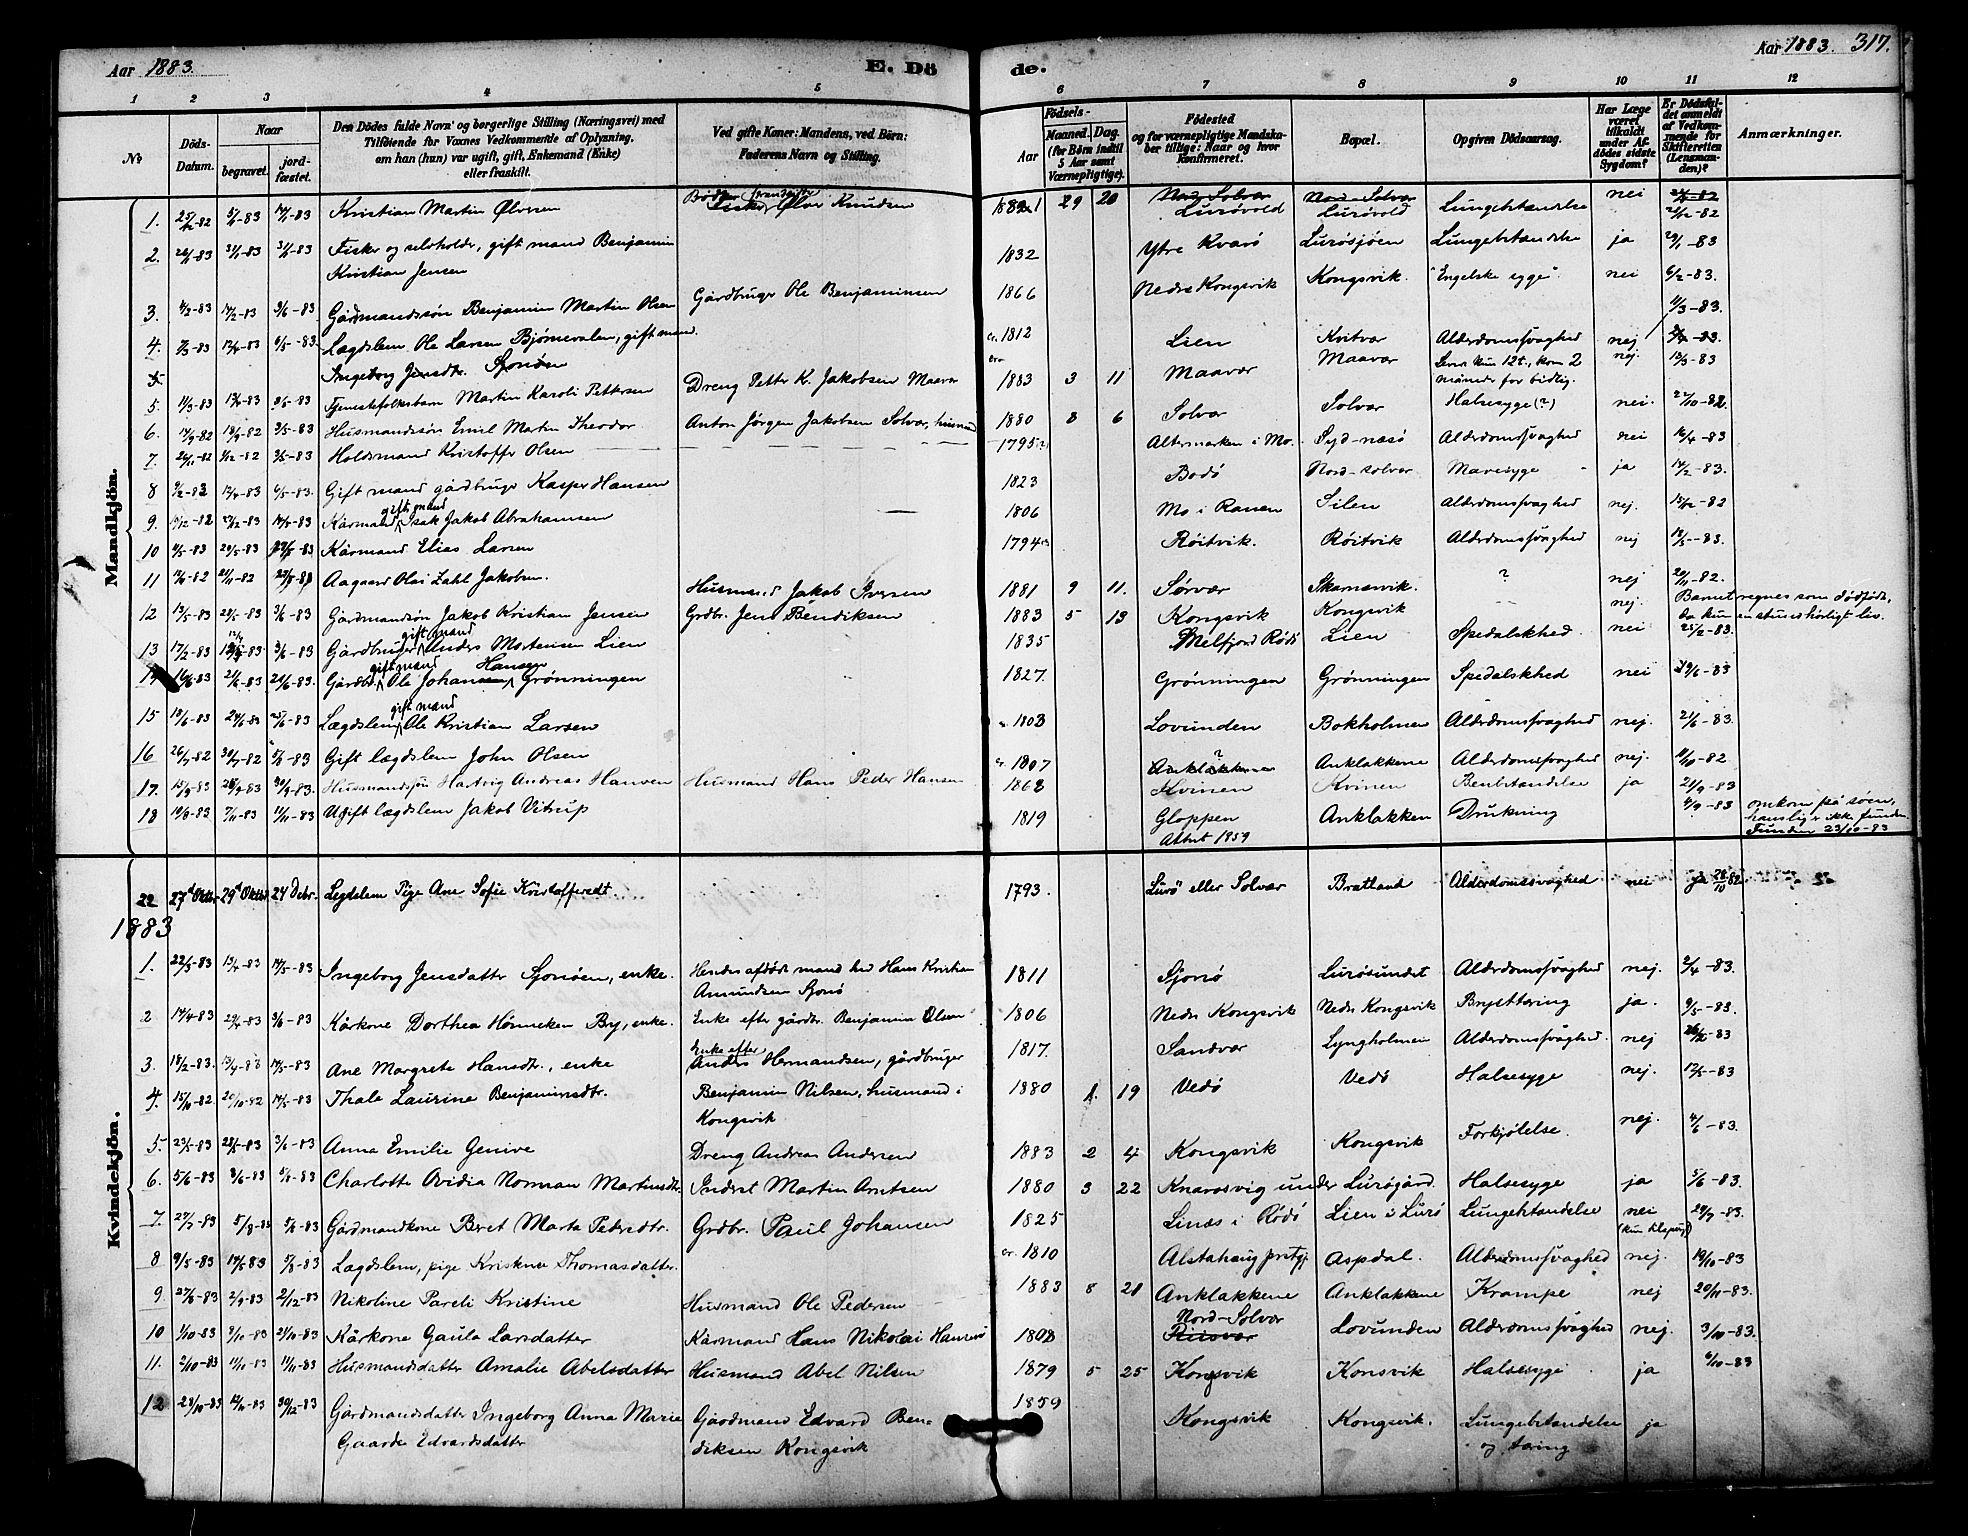 Aar 1883. E. Dö de. Aar 1883. 317.
1 2 3 4 5 6 7 8 9 10 11 12
No Döds-Datum. Naar begravet. jord-fæstet. Den Dödes fulde Navn og borgerlige Stilling (Næringsvei) med Tilföiende for Vaxnes Vedkommende af Oplysning, om han (hun) var ugift, gift, Enkemand (Enke) eller fraskilt. Ved gifte Koner: Mandens, ved Börn: Faderens Navn og Stilling. Födsels- Aar Maaned. Dag. (for Börn indtil 5 Aar samt Værnepligtige). Födested og for værnepligtige Mandskaber tillige: Naar og hvor Konfirmeret. Bopæl. Opgiven Dödsaarsag. Har Læge været tilkaldt under Afdödes sidste Sygdom? Er Dödsfaldet anmeldt af Vedkommende for Skifteretten (Lensmanden)? Anmærkninger.
Mandkjön.
1. 5/1-83 Kristian Martin Ølvesen Fisker Ølver Knudsen 29 20 Nord-Solvær Lurøvold Nord-Solvær Lurøvold Lungebetændelse nei
2. 31/1-83 Fisker og selvholder, gift mand Benjamin 1832 Ytre Kvarø Lurøsjøen Lungebetændelse ja 29/1-83
Kristian Jensen
3. Gårdmandssøn Benjamin Martin Olsen Gårdbruger Ole Benjaminsen 1866 Nedre Kongsvik Kongsvik. "Engelske syge". nei 6/2-83.
4. 6/5-83. Lægdslem Ole Larsen Bjørnevalen, gift mand. 1812 Lien Kvitvær Alderdomssvaghed nej 11/3-83.
Ingeborg Jensdtr. Sjonøen
5. 11/3-83 Tjenestefolksbarn Martin Karoli Pettersen Dreng Petter K. Jakobsen Maavær 1883 3 11 Maavær Maavær Levn kun 12t., kom 2 måneder for tidlig. nej. 13/3-83
6. 14/9-82 18/9-82 3/5-83 Husmandssøn Emil Martin Theodor Anton Jörgen Jakobsen Solvær, husmand 1880 8 6 Solvær Solvær Halsesyge (?) nei. 27/10-82.
7. 3/5-83 Holdsmand Kristoffer Olsen 1795 Altermarken i Mo. Syd-næsø Alderdomssvaghed nei 16/4-83
8 6/5-83. Gift mand gårdbruger Kasper Hansen 1823 Bodø Nord-solvær Mavesyge ja 14/2-83.
9. Kårmand, gift mand Isak Jakob Abrahamsen 1806 Mo i Ranen Silen Alderdomssvaghed nej.
10 29/5-83 Kårmand Elias Larsen 1794 Röitvik. Röitvik Alderdomssvaghed nej 18/5-83.
11 Aagaard Olai Zahl Jakobsen. Husmand Jakob Iversen 1881 9 11. Sörvær Skarnsvik. ? nej 20/11-82.
12 13/5-83 28/5-83 3/6-83 Gårdmandsön Jakob Kristian Jensen Grdbr. Jens Bendiksen 1883 5 13 Kongsvik Kongsvik nej. Barnet regnes som dödfödt, da kun en stund hörligt lev.
13 17/2-83 3/6-83 Gårdbruger, gift mand Anders Mortensen Lien 1835 Melfjord Rödö Lien Spedalskhed. nei 25/2-83.
14 Gårdbr. gift mand Ole Johansen Hansen Grönningen 1827. Grönningen Grönningen Spedalskhed nei
15 13/6-83 Lægdslem, gift mand Ole Kristian Larsen 1803 Lovunden Bokholmen Alderdomssvaghed nej. 21/6-83.
16 26/7-82 30/7-82 Gift lægdslem John Olsen cr. 1807 Anklakkene ? Anklakkene Alderdomssvaghed nej. 11/10-82
17. 15/9-83 30/9-83. Husmandssön Hartvig Andreas Hansen Husmand Hans Peder Hansen 1868 Kvinen Kvinen Benbetændelse ja 21/9-83
18 19/8-83 7/11-83 11/11-83 Ugift lægdslem Jakob Vitrup 1819 Gloppen Attest 1859 Anklakken Drukning 4/9-83 omkom på söen, hans lig er ikke funden. Funden 23/10-83
Kvindekjön.
22 27d Oktbr. 29d Oktbr 24 Debr. Legdslem Pige Ane Sofie Kristoffersdt. 1793. Lurö eller Solvær Bratland Alderdomssvaghed nei ja 28/10 82.
1883
1. 22/3-83 13/4-83 14/5-83 Ingeborg Jensdatter Sjonöen, enke. Hendes afdöde mand hed Hans Kristian 1811 Sjonö Lurösundet Alderdomssvaghed nej. 2/4-83.
Amundsen Sjonö
2 14/4-83 29/4-83 3/6-83 Kårkone Dorthea Hönneken By, enke. Enke efter gårdbr. Benjamin Olsen 1806 Nedre Kongsvik Nedre Kongsvik Brysttæring ja. 9/5-83.
3. 18/2-83. 13/4-83 14/5-83 Ane Margrete Hansdtr., enke Enke efter Anders Hermandsen, gårdbruger 1817. Sandvær Lyngholmen Alderdomssvaghed. nej
4. 15/10-82. 20/10-82 14/5-83 Thale Laurine Benjaminsdtr. Benjamin Nilsen, husmand i 1880 1. 19 Vedö Vedö Halsesyge nej. 12/5-83
Kongsvik
5. 23/5-83 28/5-83 3/6-83 Anna Emilie Genive Dreng Andreas Andersen 1883 2 4 Kongsvik Kongsvik Forkjölelse. nej. 4/6-83.
6. 5/6-83 8/6-83 5/8-83 Charlotte Ovidia Norman Martinsdtr. Inderst Martin Arntsen 1880 3 22 Knarosvig under Lurögård. Halsesyge ja 5/6-83.
7. 27/7-83 5/8-83 5/8-83 Gårdmandkone Beret Marta Pedersdtr. Grdbr. Paul Johansen 1825 Linæs i Rödö Lien i Lurö Lungebetændelse nei 29/7-83.
8 9/5-83 14/5 83 5/8-83 Lægdslem, pige Kristine Thomasdatter. cr. 1810 Alstahaug prstgj. Aspdal. Alderdomssvaghed nej. 19/10-83
9. 27/6-83 2/9-83 2/12-83 Nikoline Pareli Kristine Husmand Ole Pedersen 1883 8 21 Anklakkene Anklakkene Krampe nej 20/11-83.
10 1/10-83 9/10-83 21/10-83 Kårkone Gaula Larsdatter Kårmand Hans Nikolai Hansen 1808 Nord-Solvær Risvær Lovunden Alderdomssvaghed nej. 3/10-83.
11. 2/10-83 11/11-83 Husmandsdatter Amalie Abelsdatter Husmand Abel Nilsen 1879 5 25 Kongsvik Konsvik Halsesyge ja 6/10-83
12 28/10-83 30/12-83 Gårdmandsdatter Ingeborg Anna Marie Gårdmand Edvard Ben- 1859 Kongsvik Kongsvik. Lungebetændelse ja
Gaarder Edvardsdatter diksen Kongsvik og tæring